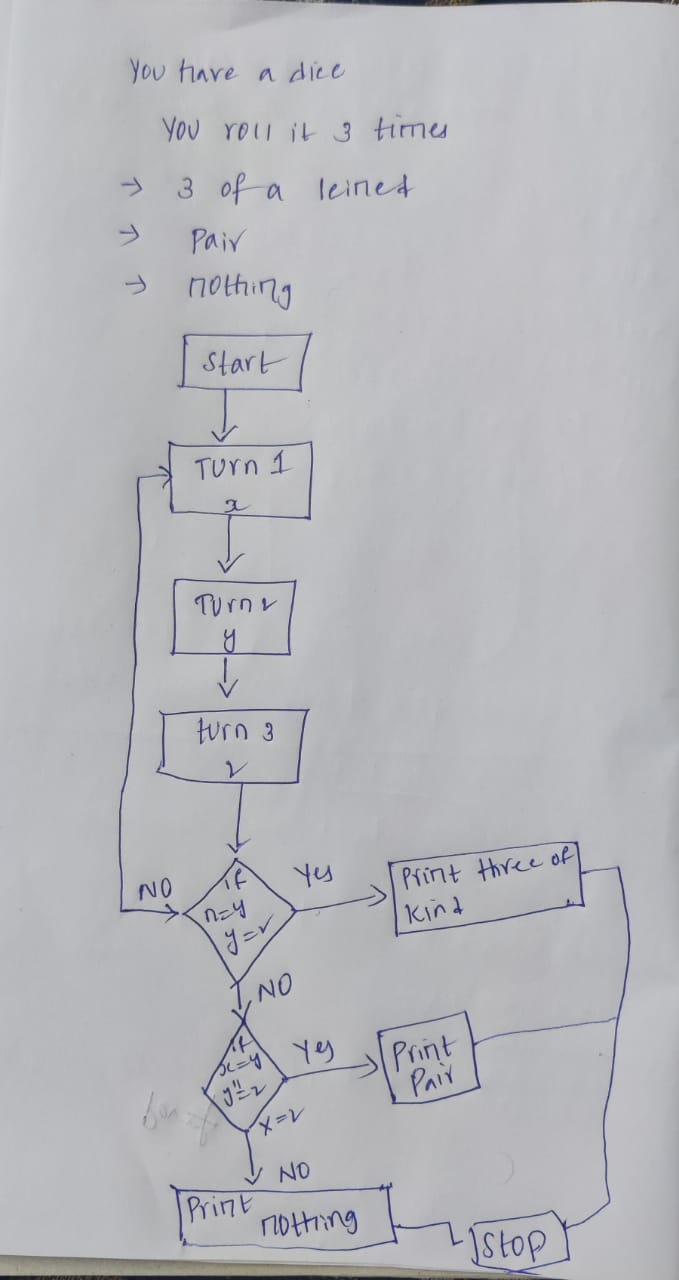 You have a dice
You roll it 3 times
→ 3 of a leined
→ Pair
→ nothing
Start
Turn 1
x
Turn 2
y
turn 3
z
if
x=y
y=z
Yes
Print three of
kind
NO
NO
if
x=y
y=z
x=z
Yes
Print
Pair
NO
Print
nothing
Stop